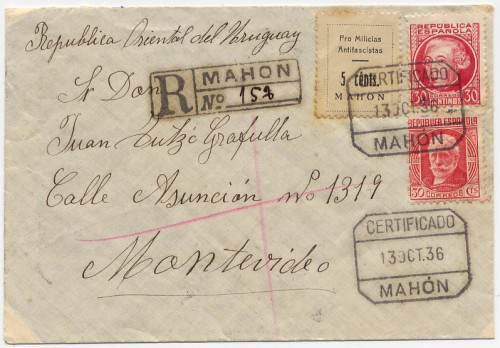 Republica Oriental del Uruguay
Sr Don
Juan
Calle Asunción nº 1319
Montevideo
R
MAHÓN
Nº 158
Pro Milicias
Antifascistas
5 cénts.
MAHON
REPÚBLICA
ESPAÑOLA
30 30
CÉNTIMOS
REPUBLICA ESPAÑOLA
30 CORREOS CTS
CERTIFICADO
13 OCT. 36
MAHÓN
CERTIFICADO
13 OCT. 36
MAHÓN